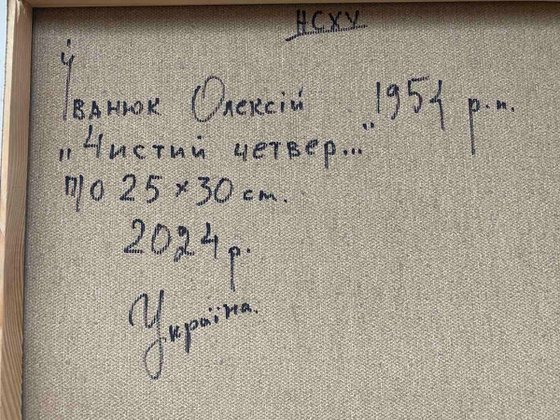 НСХУ
Іванюк Олексій 1954 р.н.
„Чистий четвер..."
п/о 25×30 ст.
2024 р.
Україна.